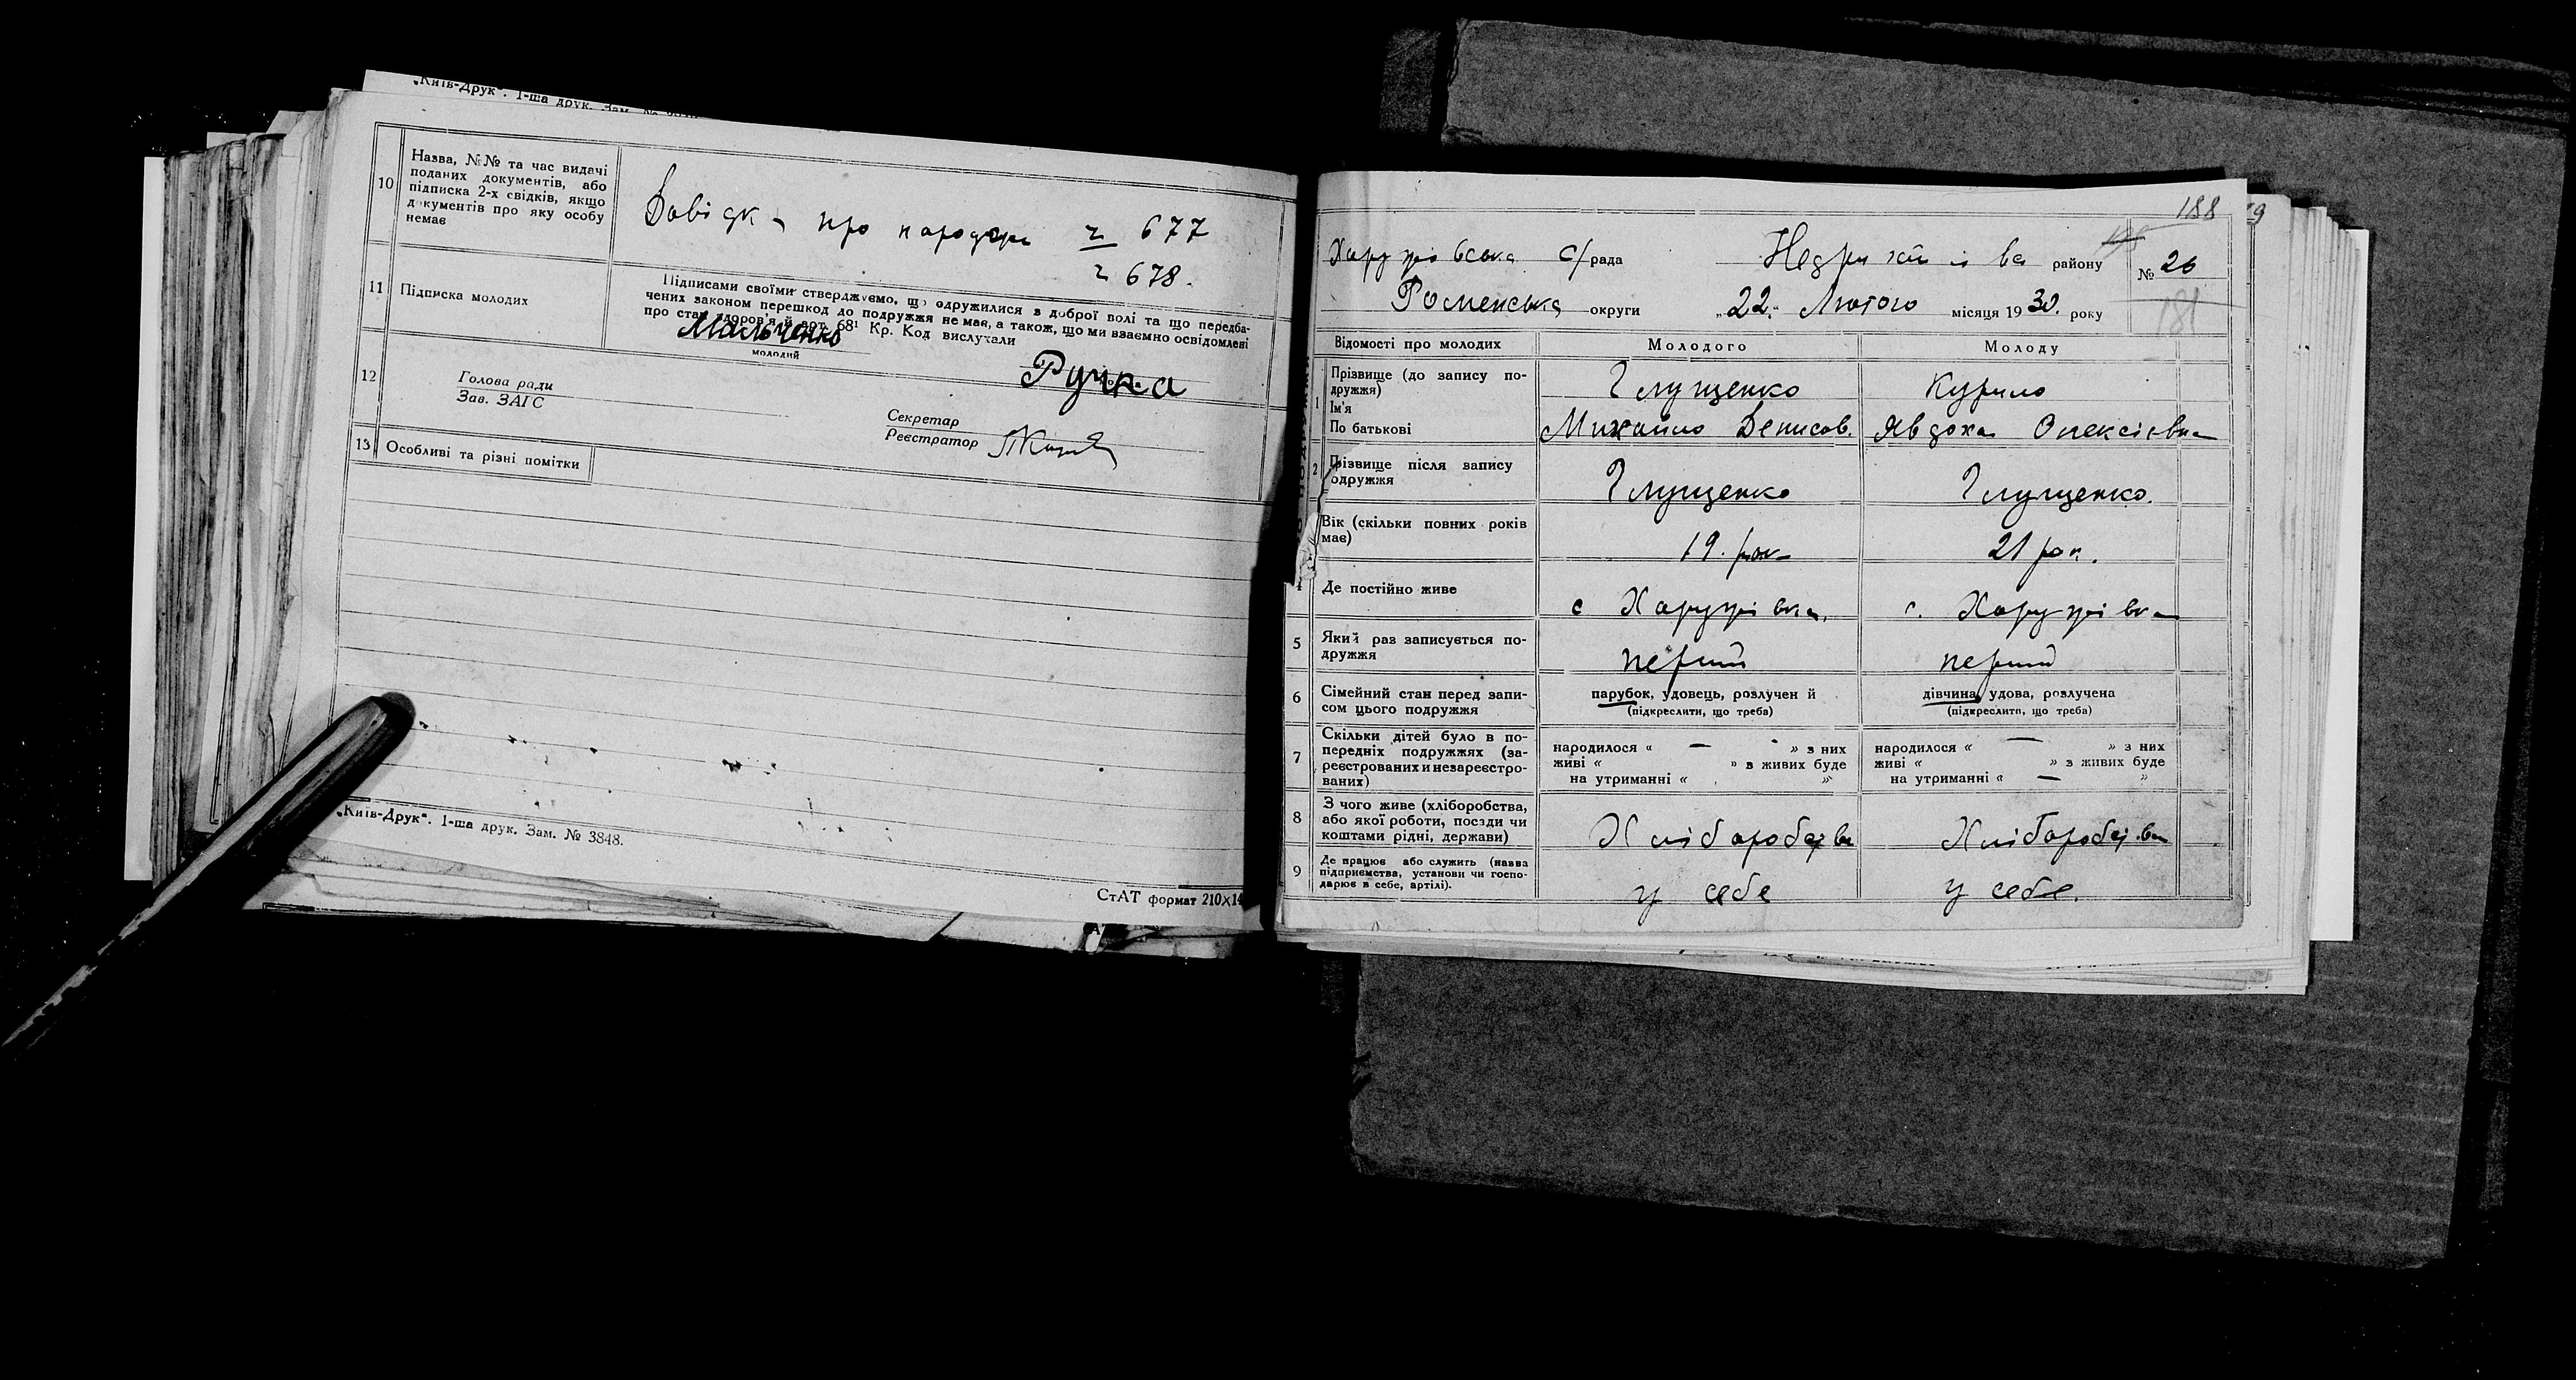 „Київ-Друк“. 1-ша друк. Зам. №
10
Назва, №№ та час видачі
поданих документів, або
підписка 2-х свідків, якщо
документів про яку особу
немає
Довідк про народж ч 677
ч 678.
11
Підписка молодих
Підписами своїми стверджуємо, що одружилися з доброї волі та що передба-
чених законом перешкод до подружжя немає, а також, що ми взаємно освідомлені
про стан здоров'я й арт. 68¹ Кр. Код вислухали
Мальченко
молодий
Ручка
12
Голова ради
Зав. ЗАГС
Секретар
Реєстратор
13
Особливі та різні помітки
„Київ-Друк“. 1-ша друк. Зам. № 3848.
СтАТ формат 210×14
188
19
с/рада
району
№ 26
Роменська округи
„22“ Лютого місяця 1930. року
181
Відомості про молодих
Молодого
Молоду
1
Прізвище (до запису по-
дружжя)
Ім'я
По батькові
Глущенко
Курило
Михайло Денисов.
Явдоха Олексіївна
2
Прізвище після запису
одружжя
Глущенко
Глущенко.
Вік (скільки повних років
має)
19. рок
21 рок.
4
Де постійно живе
с Харупівка.
с. Харупівка
5
Який раз записується по-
дружжя
перший
перший
6
Сімейний стан перед запи-
сом цього подружжя
парубок, удовець, розлучен й
(підкреслити, що треба)
дівчина, удова, розлучена
(підкреслити, що треба)
7
Скільки дітей було в по-
передніх подружжях (за-
реєстрованих и незареєстро-
ваних)
народилося « — » з них
живі « » з живих буде
на утриманні « »
народилося « — » з них
живі « » з живих буде
на утриманні « — »
8
З чого живе (хліборобства,
або якої роботи, посади чи
коштами рідні, держави)
Хліборобства
Хліборобства
9
Де працює або служить (назва
підприємства, установи чи госпо-
дарює в себе, артілі).
у себе
у себе.